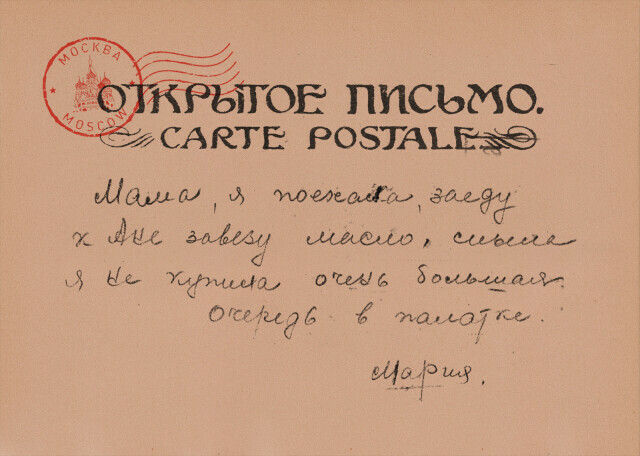 МОСКВА
MOSCOW
ОТКРЫТОЕ ПИСЬМО.
CARTE POSTALE
Мама, я поехала, заеду
к Яне завезу масло, мыла
я не купила очень большая
очередь в палатке.
Мария.